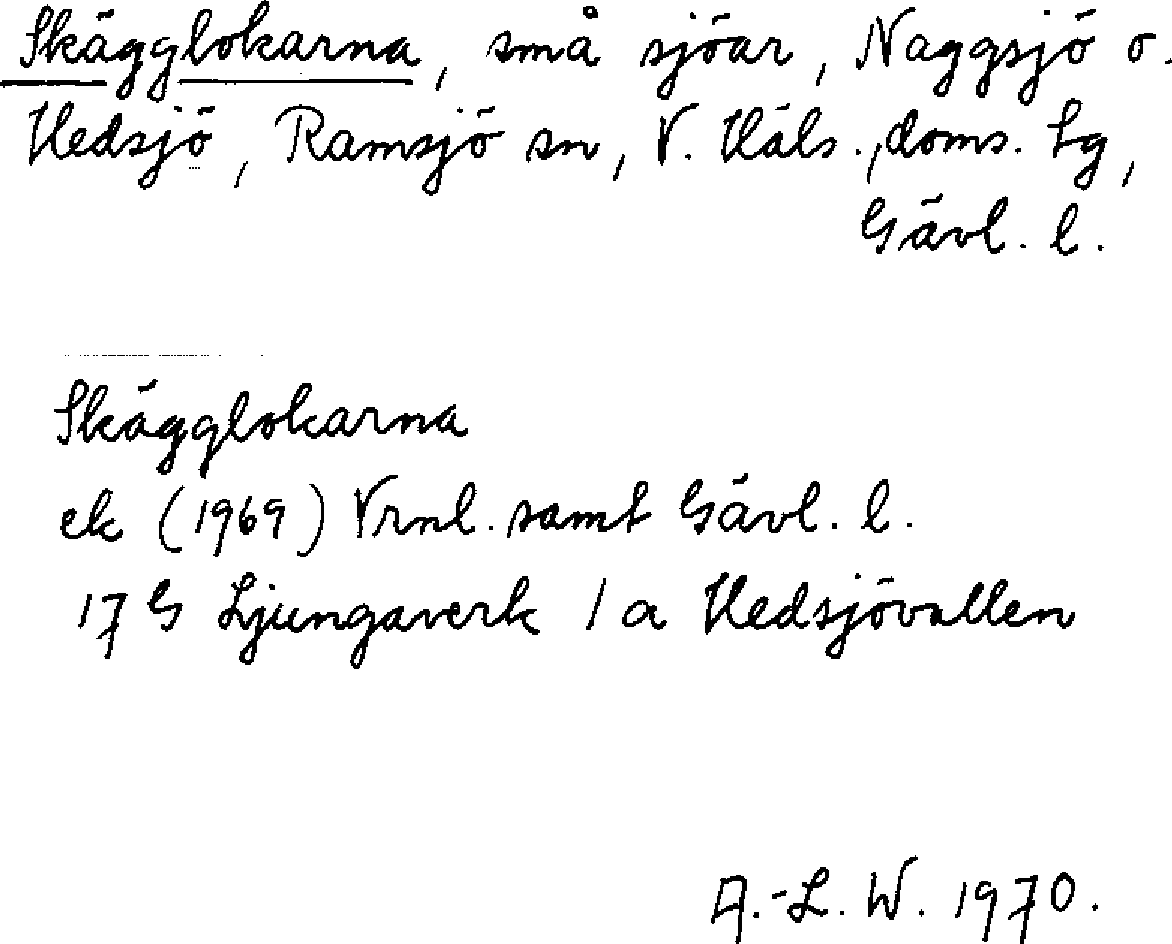 Skägglokarna, små sjöar, Naggsjö o.
Hedsjö, Ramsjö sn, V. Häls. doms. tg,
Gävl. l.
Skägglokarna
ek (1969) Vrnl. samt Gävl. l.
17 G Ljungaverk 1 a Hedsjövallen
A.-L. W. 1970.